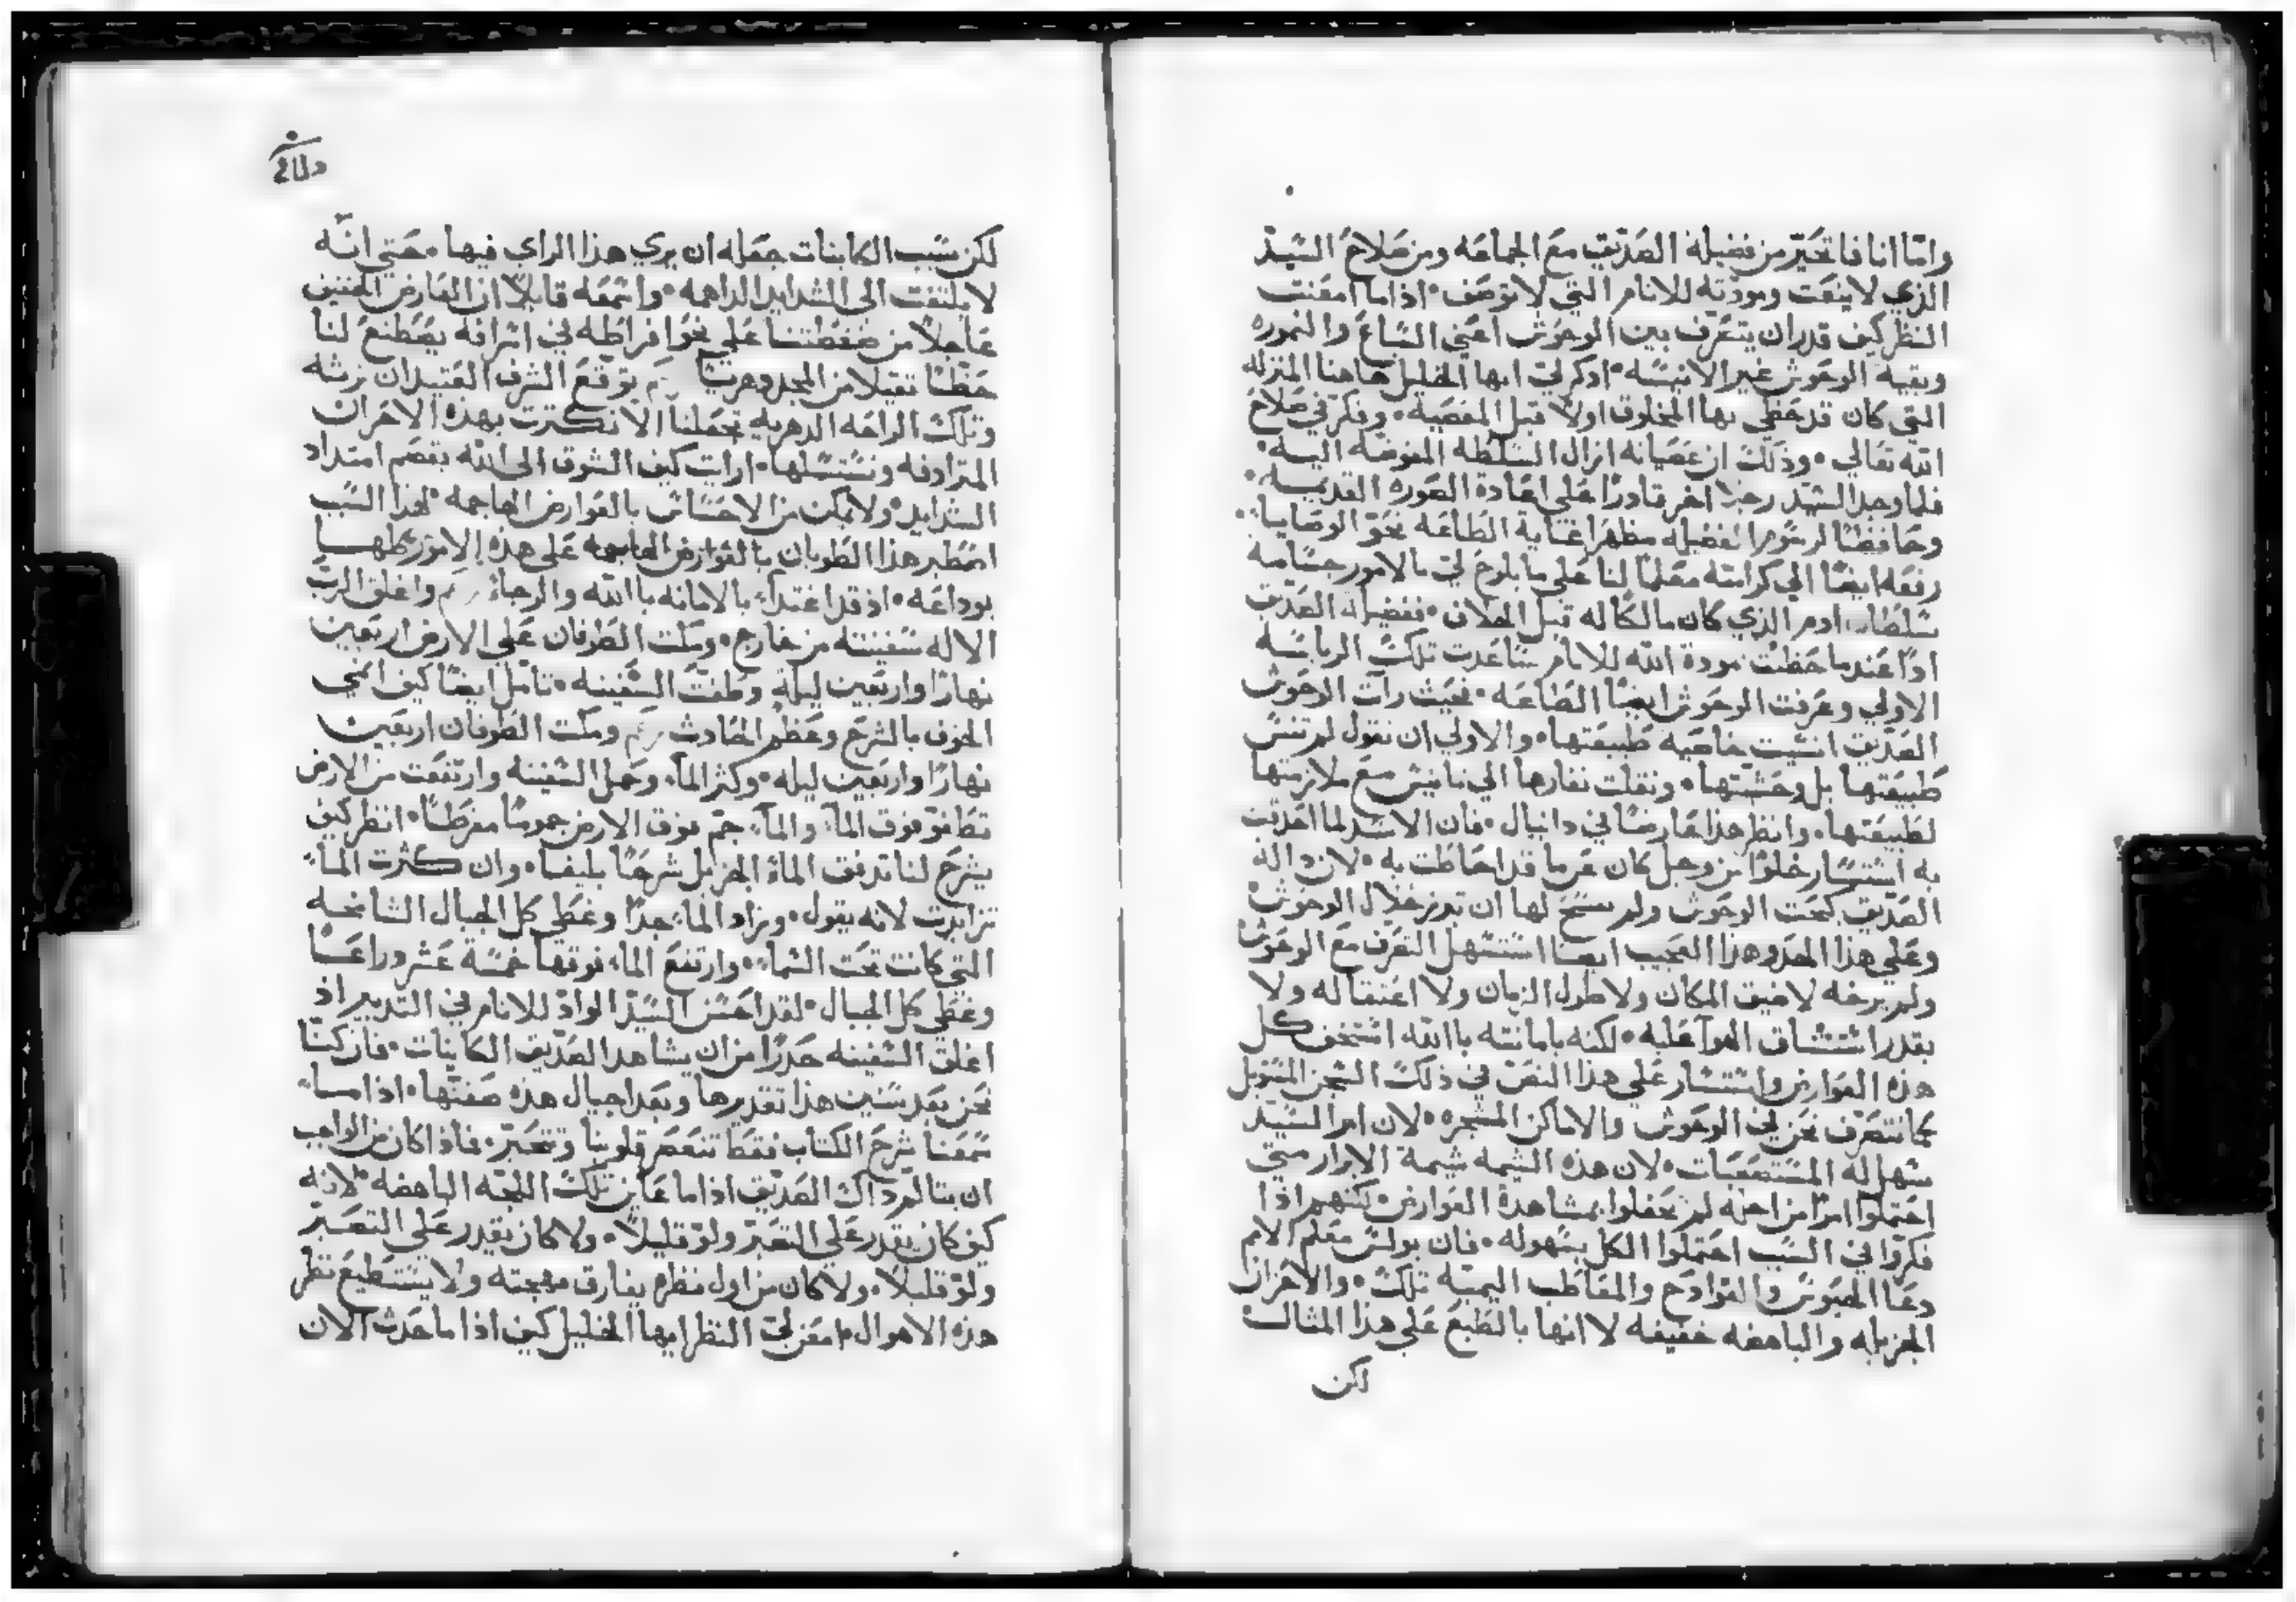 وامّا انا فاتحيّر من فضيلة الصدّيق مع الجماعه ومن صلاح السّيّد
الذي لا ينعت ومودّته للانام التي لا توصف • اذا ما امعنت
النظر كيف قدر ان يتصرف بين الوحوش اعني السّباع والنموره
وبقية الوحوش غير الانيسّه • اذكر لي ايها الخليل هاهنا المنزله
التي كان قد حظي بها المخلوق اولاً قبل المعصيه • وفكر في صلاح
الله تعالي • وذلك ان عصيانه ازال السّلطه المفوضّه اليه •
فلما وجد السّيّد رجلاً اخر قادرًا علي اعادة الصوره القديمه •
وحافظًا لرسّوم الفضيله مظهرًا غناية الطاعه نحو الوصايا •
رفعه ايضًا الي كرامته معلمًا لنا علي ما يلوح لي بالامور جسّامة
سّلطان ادم الذي كان مالكًا له قبل الخلاف • ففضيلة الصدّيق
اذًا عندما حظت مودة الله للانام سّاعدت تلك الرياسّه
الاولي وعرفت الوحوش ايضًا الطاعه • فحيث رأت الوحوش
الصدّيق انسّيت خاصّيه طبيعتها • والاولي ان نقول لم تنسّ
طبيعتها بل وحشتها • ونقلت نفارها الي تانيس مع ملازمتها
لطبيعتها • وانظر هذا عارضًا في دانيال • فان الاسّد لما احدقت
به استسّار خلوًا من وجل كان غرما قد احاطت به • لان دالة
الصدّيق كبحت الوحوش ولم يسّمح لها ان تبرز خلال الوحوش
وعلي هذا الحد وهذا العجيب ايضًا استسّهل التصرف مع الوحوش
ولم يرخه لا ضيق المكان ولا طول الزمان ولا اعتقاله ولا
بقدر استنشاق الهوآ عليه • لكنه بامانته باالله استخف كل
هذه العوارض واستسّار علي هذا النص في ذلك السّجن
كما نتصرّف نحن في الوحوش والاماكن المشجره • لان امر السّيّد
سّهل له المسّتصعبات • لان هذه الشيمه شيمة الابرار متي
احتملوا امرًا من اجله لم يحفلوا بمشاهدة العوارض لكنهم اذا
فكرّوا في السّبب احتملوا الكل بسّهوله • فان بولسّ معلم الامم
دعا الحبوسّ والقوادح والمقاطب اليميّه تلك • والاحزان
الجزيله والباهضه خفيفه لا انها بالطبع علي هذا المثال
لكن
لكن سّبب الكاينات جعله ان يري هذا الراي فيها • حتي انّه
لا يلتفت الي الشدايد الداهمه • واسّمعه قايلاً ان العارض الخفيف
عاجلاً من ضغطتنا علي نحو افراطه في اشرافه يصّطنع لنا
حظًّا ثقيلا من المجد وهو توقّع الشرف العتيد ان نرثه
وتلك الراحه الدهريه تجعلنا الا نكترت بهذه الاحزان
المترادفه ونسّتسّلها • ارايت كيف الشوق الي الله يقصم امتداد
الشدايد • ولا يمكن من الاحسّاسّ بالعوارض الهاجمه • لهذا السّبب
اصّطبر هذا الطوبان بالعوارض الهاجمه علي هذه الامور كلها
بوداعه • اذ قد اغتذا بالامانه باالله والرجاء واغلق الربّ
الاله سّفينته من خارج • ومكت الطوفان علي الارض اربعين
نهارًا واربعين ليلة وطفت السّفينه • تامّل ايضًا كيف انمي
الخوف بالشرح وعظّم الحادث ومكت الطوفان اربعين
نهارًا واربعين ليله • وكثر المآء وحمل السّفينه وارتفعت من الارض
تطافوّ فوق المآء والمآء جمّ فوق الارض جمومًا مفرطًا • انظر كيف
يشرح لنا تدفق المآء الجزيل شرحًا بليغا • وان كثرت المآء
تزايدت لانه يقول • وزاد المآء جدًا وغطي كل الجبال الشامخه
التي كانت تحت السّماء • وارتفع المآء فوقها خمسّة عشر دراعًا
وغطي كل الجبال • لقد احسّن السّيّد الوادّ للانام في التدبير اذ
اغلق السّفينه حذرًا من ان يشاهد الصدّيق الكاينات • فان كنّا
نحن بعد سّنين هذا تقديرها وبعد اجيال هذه صفتها • اذا ما
سّمعنا شرح الكتاب فقط تنعصر قلوبنا وتتحيّر • فماذا كان من الواجب
ان يتالم ذاك الصدّيق اذا ما عاين تلك اللجّه الباهضه • لانه
كيف كان يقدر علي التصبّر ولو قليلاً • ولا كان يقدر علي التصبّر
ولو قليلاً • ولا كان من اول نظره يفارق مهجته ولا يسّتطيع نظر
هذه الاهوال • امعن لي النظر ايها الخليل كيف اذا ما حدث الان